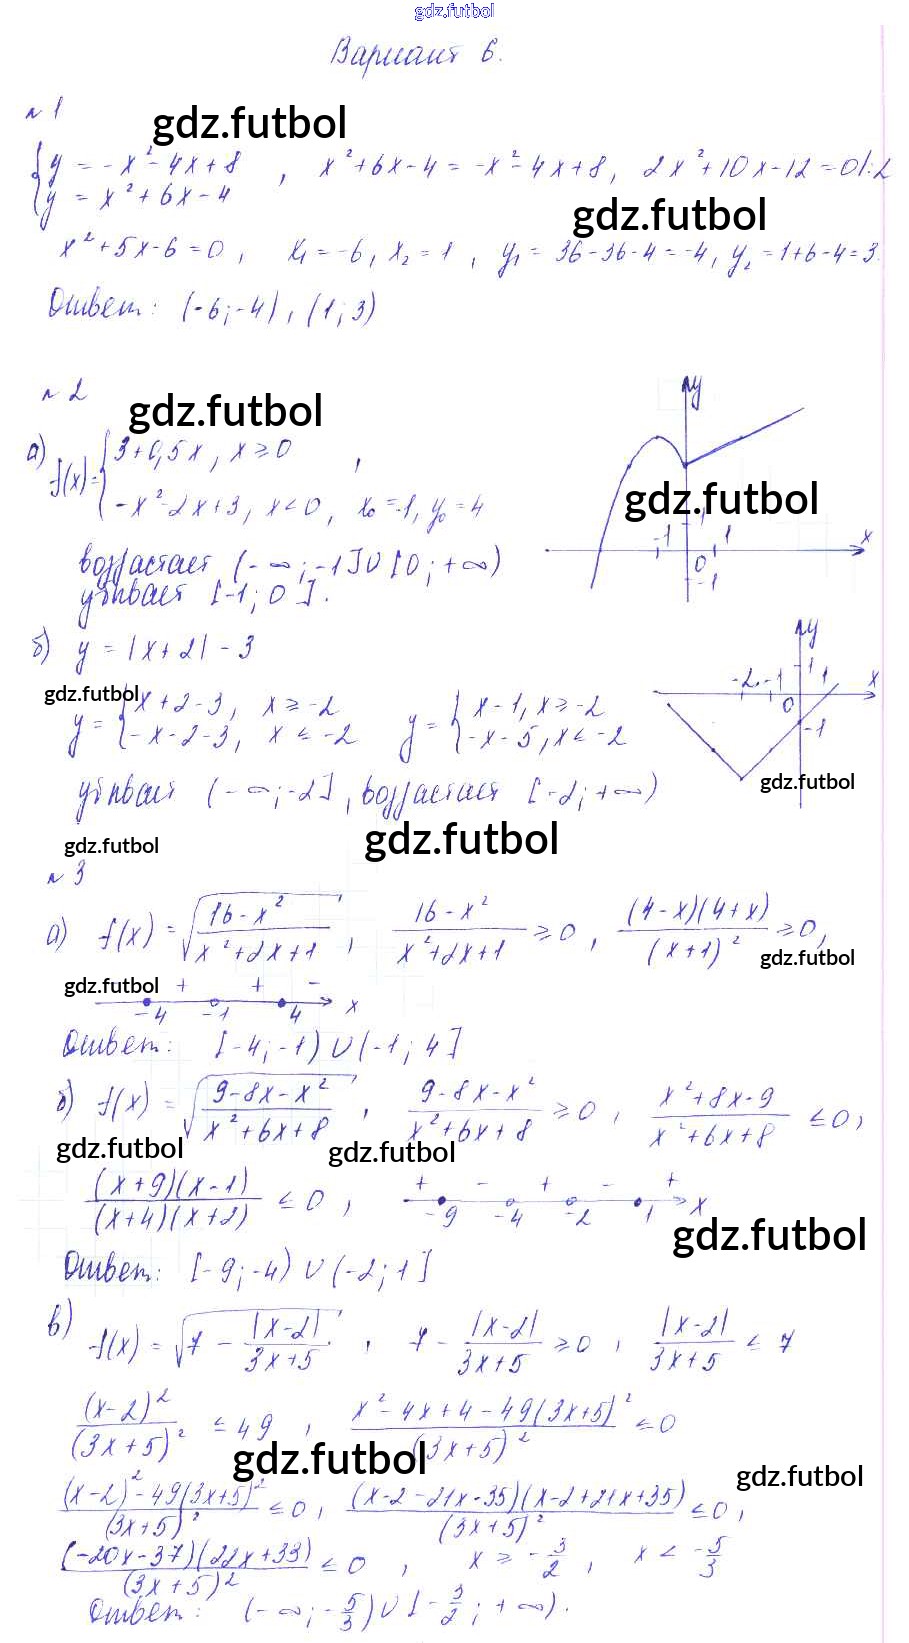 gdz.futbol
Вариант 6.
№1
gdz.futbol
{y = -x² - 4x + 8
y = x² + 6x - 4 , x² + 6x - 4 = -x² - 4x + 8, 2x² + 10x - 12 = 0 |:2
gdz.futbol
x² + 5x - 6 = 0, x₁ = -6, x₂ = 1, y₁ = 36 - 36 - 4 = -4, y₂ = 1 + 6 - 4 = 3.
Ответ: (-6; -4), (1; 3)
№2
gdz.futbol
а) f(x) = {3 + 0,5x, x ≥ 0 ,
-x² - 2x + 3, x < 0, x₀ = -1, y₀ = 4
gdz.futbol
y
1
-1 1 x
0
-1
возрастает (-∞; -1] ∪ [0; +∞)
убывает [-1; 0].
б) y = |x + 2| - 3
y
1
-2 -1 1 x
0
-1
gdz.futbol
y = {x + 2 - 3, x ≥ -2
-x - 2 - 3, x < -2
y = {x - 1, x ≥ -2
-x - 5, x < -2
gdz.futbol
убывает (-∞; -2], возрастает [-2; +∞)
gdz.futbol
gdz.futbol
№3
а) f(x) = √((16 - x²)/(x² + 2x + 1)) , (16 - x²)/(x² + 2x + 1) ≥ 0, ((4 - x)(4 + x))/((x + 1)²) ≥ 0,
gdz.futbol
gdz.futbol
+ + -
-4 -1 4 x
Ответ: [-4; -1) ∪ (-1; 4]
б) f(x) = √((9 - 8x - x²)/(x² + 6x + 8)) , (9 - 8x - x²)/(x² + 6x + 8) ≥ 0, (x² + 8x - 9)/(x² + 6x + 8) ≤ 0,
gdz.futbol
gdz.futbol
((x + 9)(x - 1))/((x + 4)(x + 2)) ≤ 0,
+ - + - +
-9 -4 -2 1 x
gdz.futbol
Ответ: [-9; -4) ∪ (-2; 1]
в) f(x) = √(7 - |x - 2|/(3x + 5)) , 7 - |x - 2|/(3x + 5) ≥ 0, |x - 2|/(3x + 5) ≤ 7
(x - 2)²/(3x + 5)² ≤ 49, (x² - 4x + 4 - 49(3x + 5)²)/(3x + 5)² ≤ 0
gdz.futbol
gdz.futbol
((x - 2)² - 49(3x + 5)²)/(3x + 5)² ≤ 0, ((x - 2 - 21x - 35)(x - 2 + 21x + 35))/(3x + 5)² ≤ 0,
((-20x - 37)(22x + 33))/(3x + 5)² ≤ 0, x ≥ -3/2, x < -5/3
Ответ: (-∞; -5/3) ∪ [-3/2; +∞).